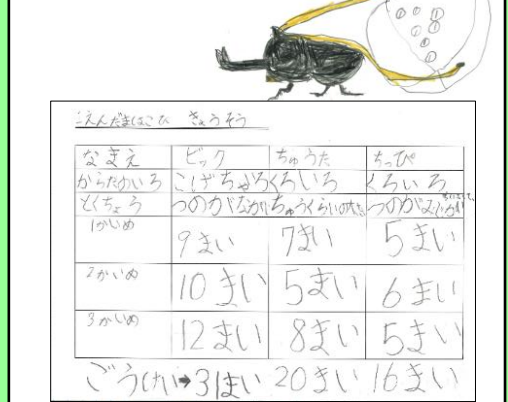 1えんだまはこび きょうそう
なまえ ビック ちゅうた ちっぴ
からだのいろ こげちゃいろ くろいろ くろいろ
とくちょう つのがながい ちゅうくらいの つのが
1かいめ 9まい 7まい 5まい
2かいめ 10まい 5まい 6まい
3かいめ 12まい 8まい 5まい
ごうけい→31まい 20まい 16まい